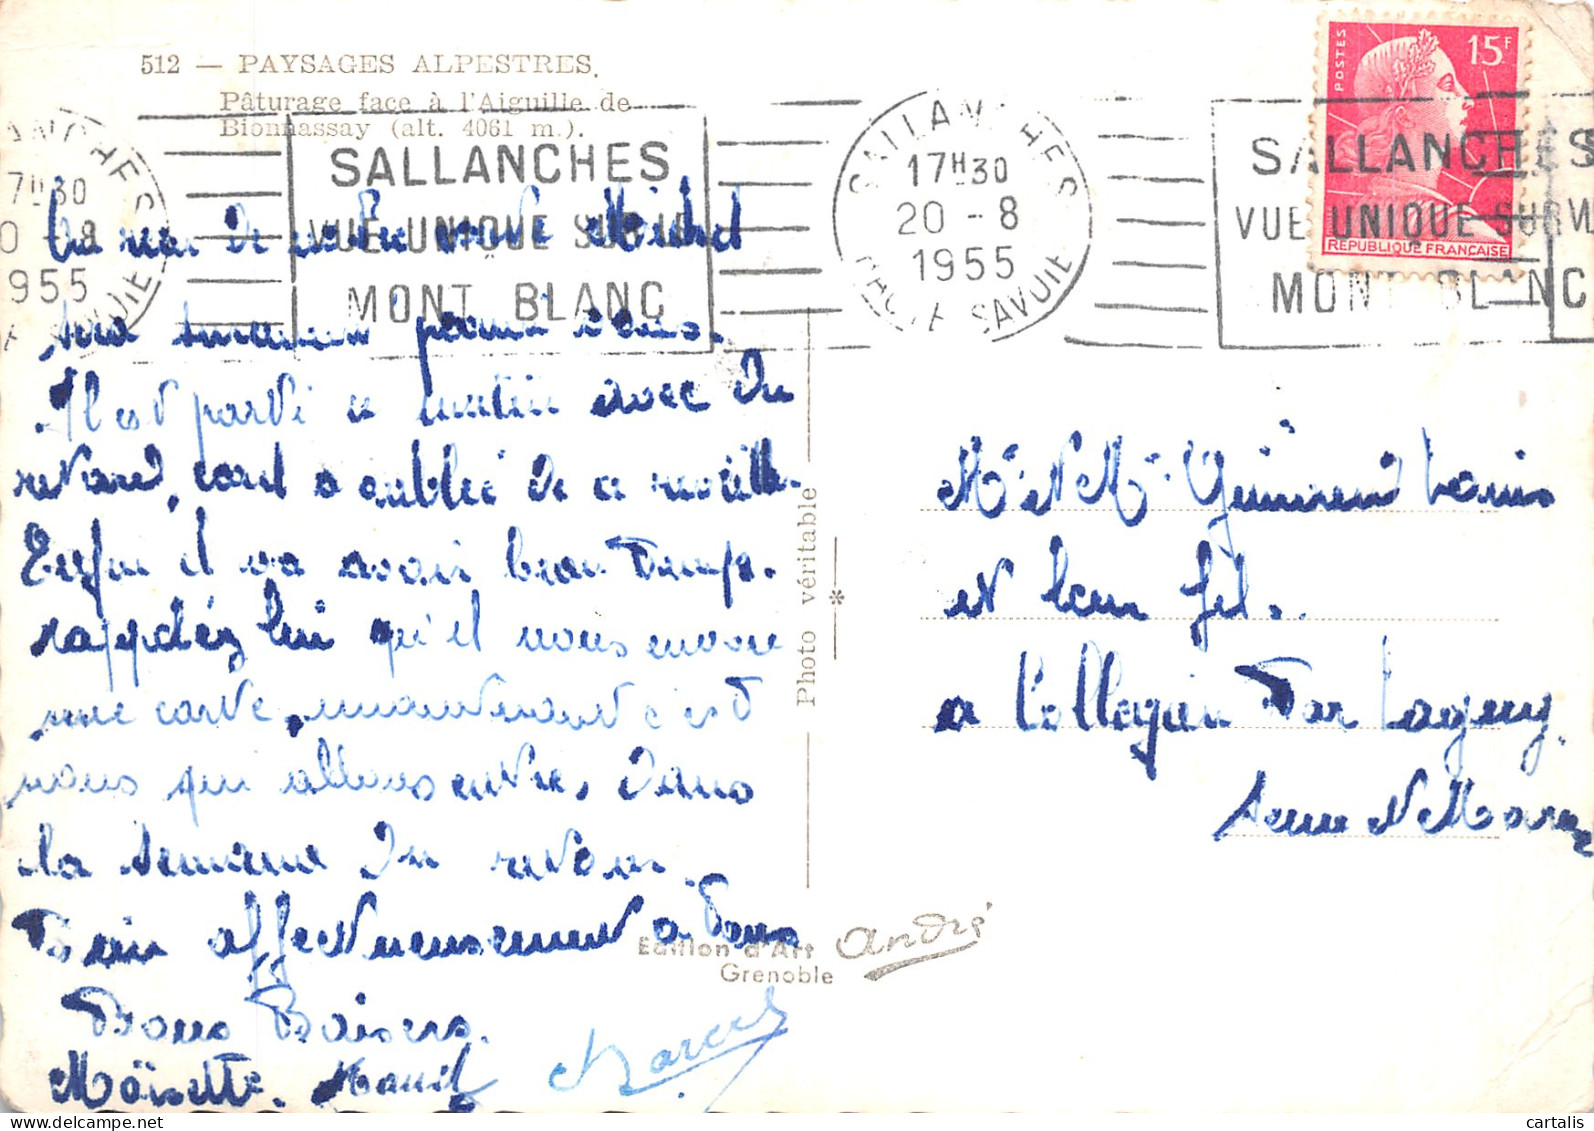 512 — PAYSAGES ALPESTRES.
Pâturage face à l'Aiguille de
Bionnassay (alt. 4061 m.).
SALLANCHES
17H30
20 - 8
1955
HAUTE SAVOIE
SALLANCHES
VUE UNIQUE SUR LE
MONT BLANC
SALLANCHES
17H30
20 - 8
1955
HAUTE SAVOIE
SALLANCHES
VUE UNIQUE SUR LE
MONT BLANC
POSTES
15F
REPUBLIQUE FRANÇAISE
de votre Michel
parmi vous.
Il est parti ce matin avec du
retard, car a oublié de ce réveille.
Enfin il va avoir beau temps.
rappelez lui qu'il nous envoie
une carte, maintenant c'est
nous qui allons être, dans
la semaine du retour.
Bien affectueusement a Tous
Bons Baisers.
Moïsette. Marcel
Photo véritable
*
Edition d'Art André
Grenoble
Mr et Mme Louis
et leur fils.
a Collegien Par Lagny.
Seine et Marne
cartalis